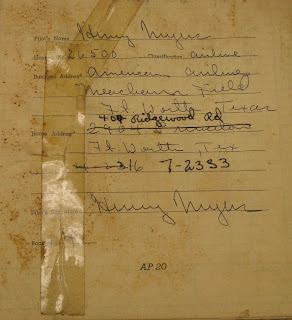 Pilot's Name Henry Myers
License No. 26500 Classification airline
Business Address* American Airways
Meacham Field
Ft. Worth, Texas
409 Ridgewood Rd
Home Address* 2904
Ft. Worth, Tex
316 7-2333
Pilot's Signature Henry Myers
AP 20